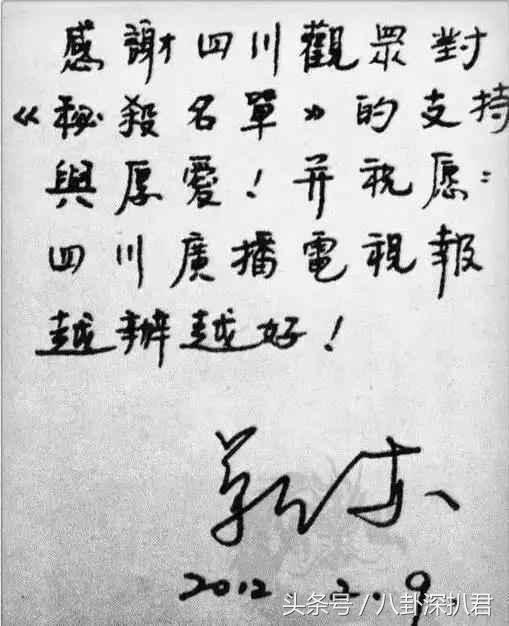 感謝四川觀眾對
《秘殺名單》的支持
與厚愛！并祝愿：
四川廣播電視報
越辦越好！
靳东
2012.2.9.
头条号 / 八卦深扒君